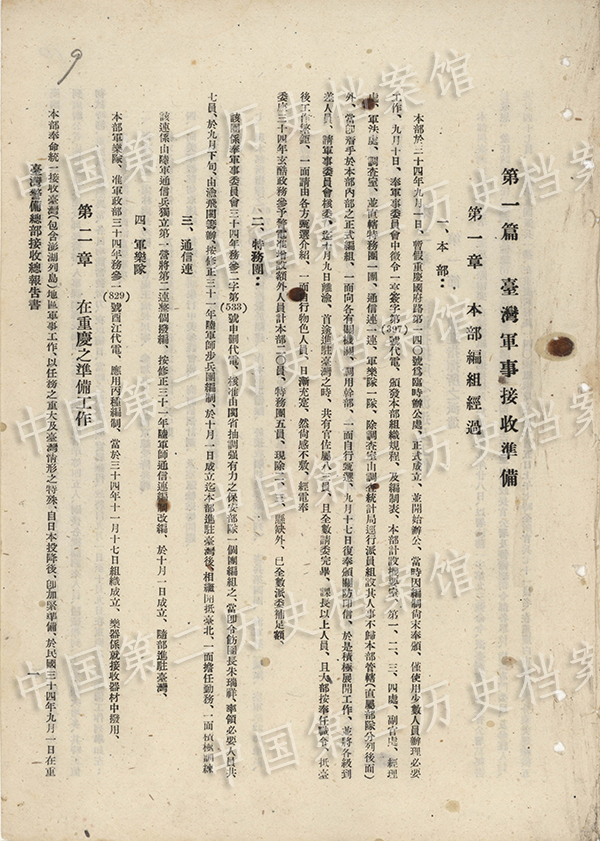 9
第一篇　臺灣軍事接收準備
第一章　本部編組經過
一、本部：
本部於三十四年九月一日、暫假重慶國府路第一四〇號爲臨時辦公處、正式成立、並開始辦公、當時因編制尚未奉頒、僅使用少數人員辦理必要
工作、九月十日、奉軍事委員會中微令一亨簽字第(397)號代電、頒發本部組織規程、及編制表、本部計設 第一、二、三、四處、副官處、經理
處、軍法處、調查室、並直轄特務團一團、通信連一連、軍樂隊一隊、除調查室由調查統計局逕行派員組設其人事不歸本部管轄(直屬部隊分列後面)
外、當即着手於本部內部之正式編組、一面向各有關機關、調用幹部、一面自行甄選、九月十七日復奉頒關防印信、於是積極展開工作、並將各級到
差人員、請軍事委員會核委、迄十月九日離渝、首途進駐臺灣之時、共有官佐屬八一員、且全數請委完畢、課長以上人員、且大部按奉任職令、抵臺
後工作繁鉅、一面請由各方甄選介紹、一面自行物色人員、日漸充實、然尚感不敷、經電奉
委座三十四年亥酷政務參予警電准增設額外人員計本部二〇員、特務團五員、現除二、三、懸缺外、已全數派委補足額、
二、特務團：
該團係奉軍事委員會三十四年務參二字第(533)號申銷代電、核准由閩省抽調强有力之保安部隊一個團編組之、當即令飭團長朱瑞祥、率領必要人員共
七員、於九月下旬、由渝飛閩籌辦、按修正三十一年陸軍師步兵團編制、於十月一日成立迄本部進駐臺灣後、相繼開抵臺北、一面擔任勤務、一面積極訓練
三、通信連
該連係由陸軍通信兵獨立第一營將第二連整個撥編、按修正三十一年陸軍師通信連編制改編、於十月一日成立、隨部進駐臺灣、
四、軍樂隊
本部軍樂隊、准軍政部三十四年務參一(829)號酉江代電、應用丙種編制、當於三十四年十一月十七日組織成立、樂器係就接收器材中撥用、
第二章　在重慶之準備工作
本部奉命統一接收臺灣(包含澎湖列島)地區軍事工作、以任務之重大及臺灣情形之特殊、自日本投降後、卽加緊準備、於民國三十四年九月一日在重
臺灣警備總部接收總報告書
一
中国第二历史档案馆
中国第二历史档案馆
中国第二历史档案馆
中国第二历史档案馆